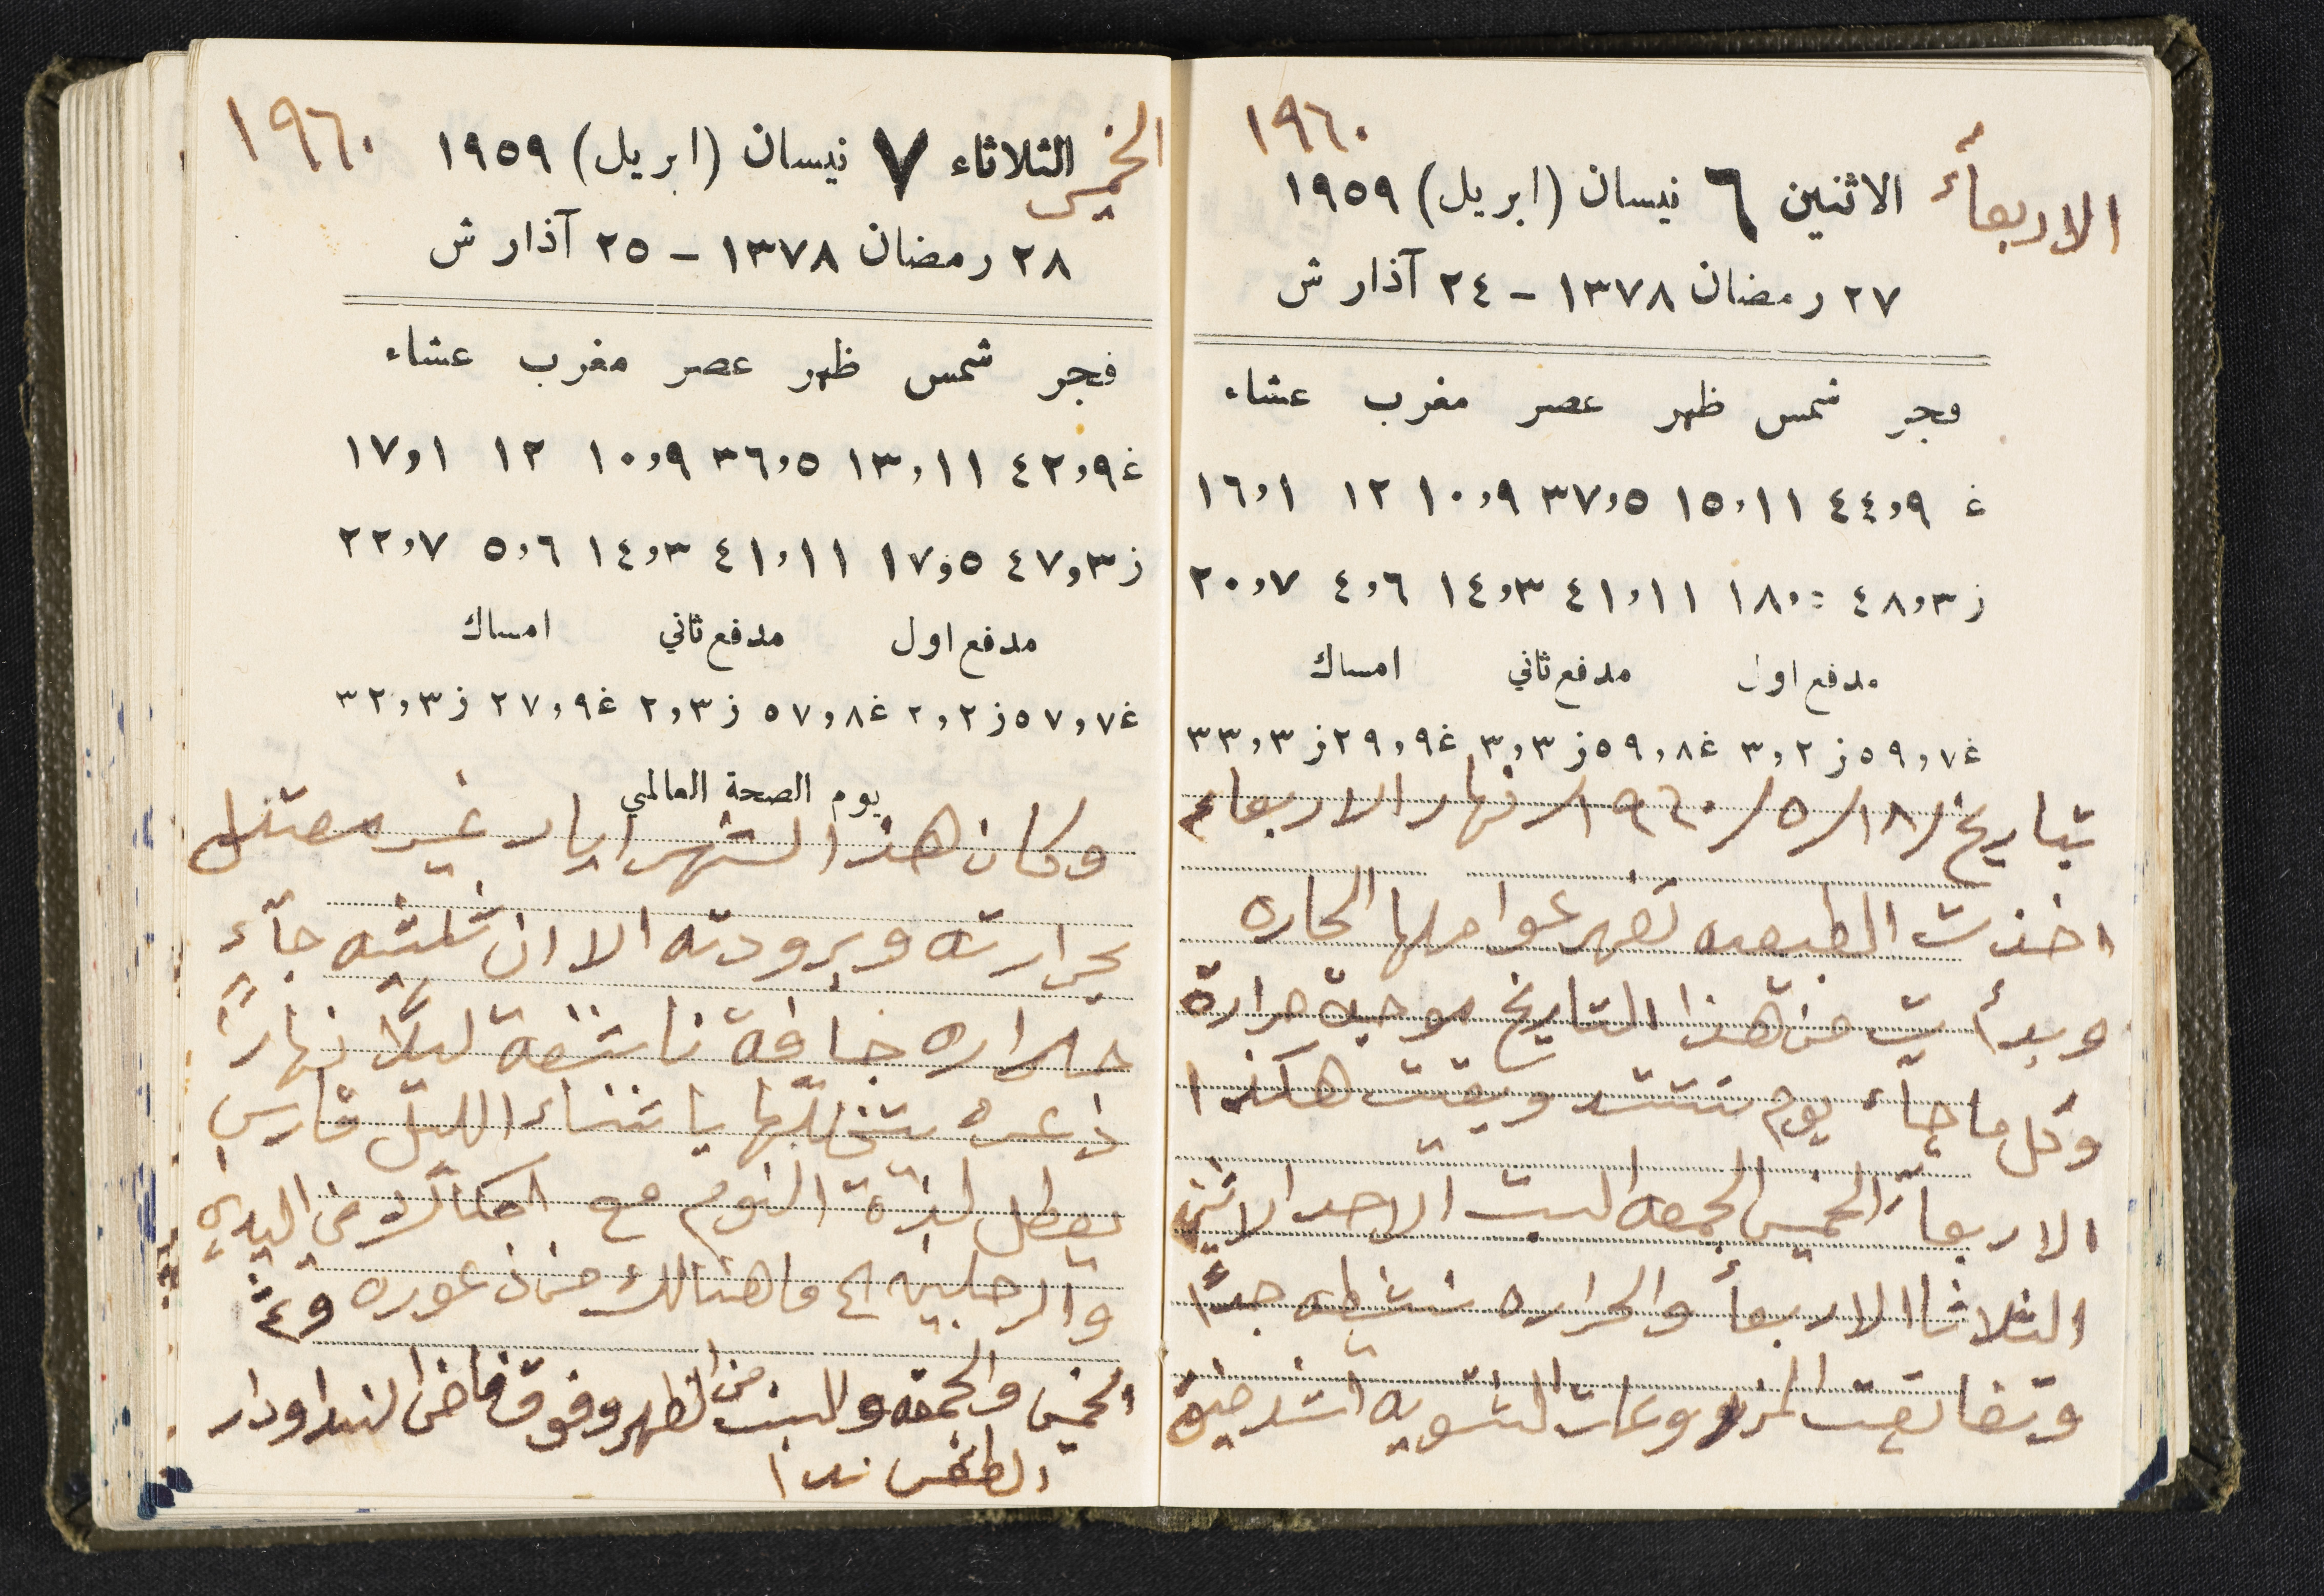 ١٩٦٠
الاربعأ الاثنين ٦ نيسان (ابريل) ١٩٥٩
٢٧ رمضان ١٣٧٨ – ٢٤ آذار ش
فجر شمس ظهر عصر مغرب عشاء
غ ٤٤,٩ ١٥,١١ ٣٧,٥ ١٠,٩ ١٢ ١٦,١
ز ٤٨,٣ ١٨,: ٤١,١١ ١٤,٣ ٤,٦ ٢٠,٧
مدفع اول مدفع ثاني امساك
غ ٥٩,٧ ز ٣,٢ غ ٥٩,٨ ز ٣,٣ غ ٢٩,٩ ز ٣٣,٣
بتاريخ ١٨/٥/١٩٦٠ نهار الاربعاء
اخذت الطبيعه تضهر عواملها الحاره
وبدأت من هذا التاريخ موجة حرارة
وكل ما جاء يوم تشتد وبقيت هكذا
الاربعاء الخميس الجمعه السبت الاحد الاثنين
الثلاثا الاربعأ والحراره نشطه جدًا
وتضايقت المزروعات الشتويه اشد ضيق
الخميس الثلاثاء ٧ نيسان (ابريل) ١٩٥٩ ١٩٦٠
٢٨ رمضان ١٣٧٨ – ٢٥ آذار ش
فجر شمس ظهر عصر مغرب عشاء
غ ٤٢,٩ ١٣,١١ ٣٦,٥ ١٠,٩ ١٢ ١٧,١
ز ٤٧,٣ ١٧,٥ ٤١,١١ ١٤,٣ ٥,٦ ٢٢,٧
مدفع اول مدفع ثاني امساك
غ ٥٧,٧ ز ٢,٢ غ ٥٧,٨ ز ٢,٣ غ ٢٧,٩ ز ٣٢,٣
يوم الصحة العالمي
وكان هذا الشهر ايار غير معتدل
بحرارته وبرودته الا ان ثلثيه جآء
حراره جافة ناشفة ليلًا نهارًا
يتخللها باثناء الليل قارس
يعطل لذة النوم مع في اليدين
والرجلين ما هنالك من
الخميس والجمعه والسبت من الظهر وفوق فاض الندا ودار
الطقس ندا